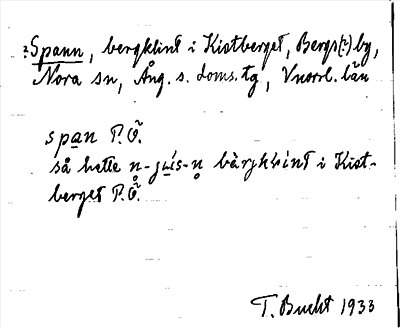 ?Spann, bergklint i Kistberget, Bergs(?)by,
Nora sn, Ång. s. doms.tg, Vnorrl. län
span P.Ö.
så hette bärgklint i Kist-
berget P.Ö.
T. Bucht 1933